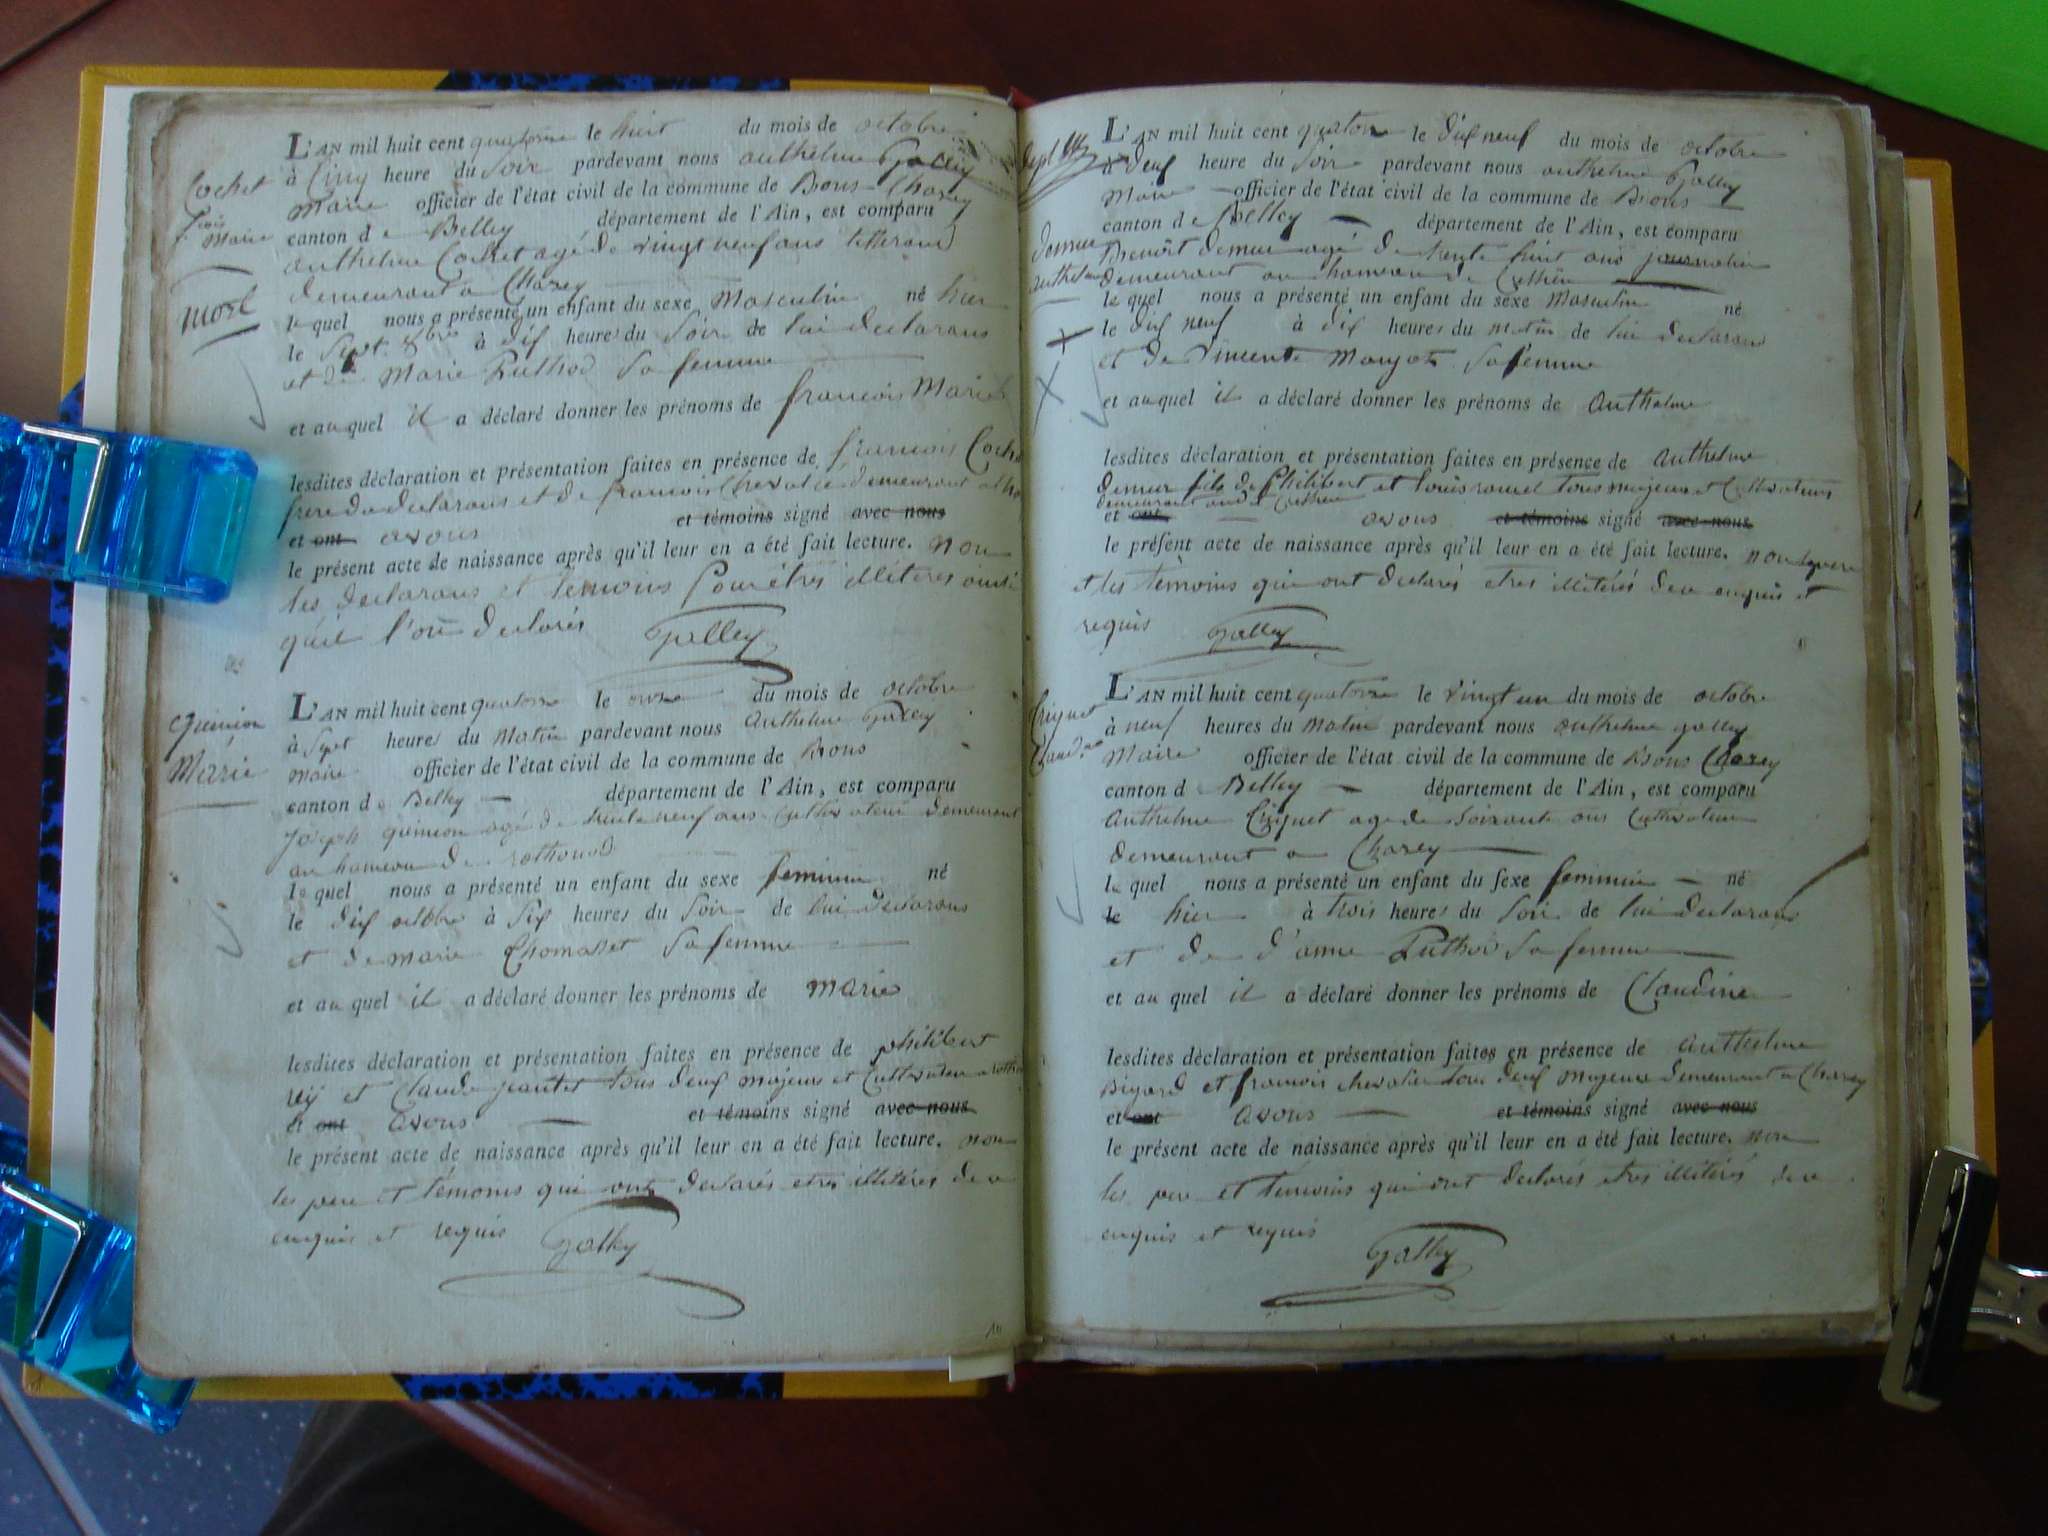 L'AN mil huit cent quatorze le huit du mois de octobre
à Cinq heure du Soir pardevant nous anthelme Galley
Maire officier de l'état civil de la commune de Bons Charey
canton de Belley département de l'Ain, est comparu
anthelme Cochet agé de vingt neuf ans
demeurant a Charey
le quel nous a présenté un enfant du sexe Masculin né hier
le Sept 8bre à dix heures du Soir de lui declarans
et de Marie Puthod sa femme
et au quel il a déclaré donner les prénoms de francois Marie
lesdites déclaration et présentation faites en présence de francois Coche
frere du declarans et de francois Chevalier demeurant
et ont avons et témoins signé avec nous
le présent acte de naissance après qu'il leur en a été fait lecture. non
les declarans et temoins Pour étres illiteres ainsi
quil l'on declarés Galley
Cochet
fcois
Marie
mort
L'AN mil huit cent quatorze le onze du mois de octobre
à Sept heures du Matin pardevant nous Anthelme Galley
Maire officier de l'état civil de la commune de Bons
canton de Belley département de l'Ain, est comparu
Joseph quinion agé de trente neuf ans Cultivateur demeurant
au hameau de rothonod
le quel nous a présenté un enfant du sexe feminin né
le dix octobre à Six heures du Soir de lui declarans
et de marie Thomasset sa femme
et au quel il a déclaré donner les prénoms de Marie
lesdites déclaration et présentation faites en présence de philibert
rey et Claude jeantet tous deux majeurs et Cultivateur a
et ont avons et témoins signé avec nous
le présent acte de naissance après qu'il leur en a été fait lecture. non
les pere et témoins qui ont declarés etres illitérés de ce
enquis et requis Galley
quinion
Marie
L'AN mil huit cent quatorze le dix neuf du mois de octobre
à deux heure du Soir pardevant nous anthelme Galley
Maire officier de l'état civil de la commune de Bons
canton de Belley département de l'Ain, est comparu
Benoît demeur agé de trente huit ans journalier
demeurant au hameau de
le quel nous a présenté un enfant du sexe Masculin né
le dix neuf à dix heures du matin de lui declarans
et de Vincente sa femme
et au quel il a déclaré donner les prénoms de Anthelme
lesdites déclaration et présentation faites en présence de Anthelme
demeur fils de Philibert et louis tous majeurs et Cultivateurs
demeurant
et ont avons et témoins signé avec nous
le présent acte de naissance après qu'il leur en a été fait lecture. non
et les témoins qui ont declarés etres illitérés de ce enquis et
requis Galley
demeur
anthelme
L'AN mil huit cent quatorze le vingt un du mois de octobre
à neuf heures du Matin pardevant nous anthelme galley
Maire officier de l'état civil de la commune de Bons Charey
canton de Belley département de l'Ain, est comparu
Anthelme agé de Soixante ans Cultivateur
demeurant a Charey
le quel nous a présenté un enfant du sexe feminin né
le hier à trois heures du Soir de lui declarans
et de d'anne Puthod sa femme
et au quel il a déclaré donner les prénoms de Claudine
lesdites déclaration et présentation faites en présence de Anthelme
Bigard et francois chevalier tous deux Majeurs demeurant a Charey
et ont avons et témoins signé avec nous
le présent acte de naissance après qu'il leur en a été fait lecture. non
les pere et temoins qui ont declarés etres illitérés de ce
enquis et requis Galley